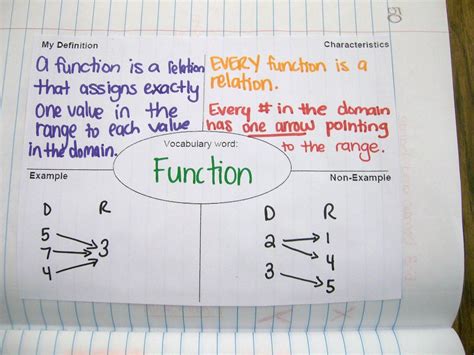 50
My Definition
A function is a relation
that assigns exactly
one value in the
range to each value
in the domain.
Characteristics
EVERY function is a
relation.
Every # in the domain
has one arrow pointing
to the range.
Vocabulary word:
Function
Example
D R
5
7 3
4
Non-Example
D R
2 1
4
3 5